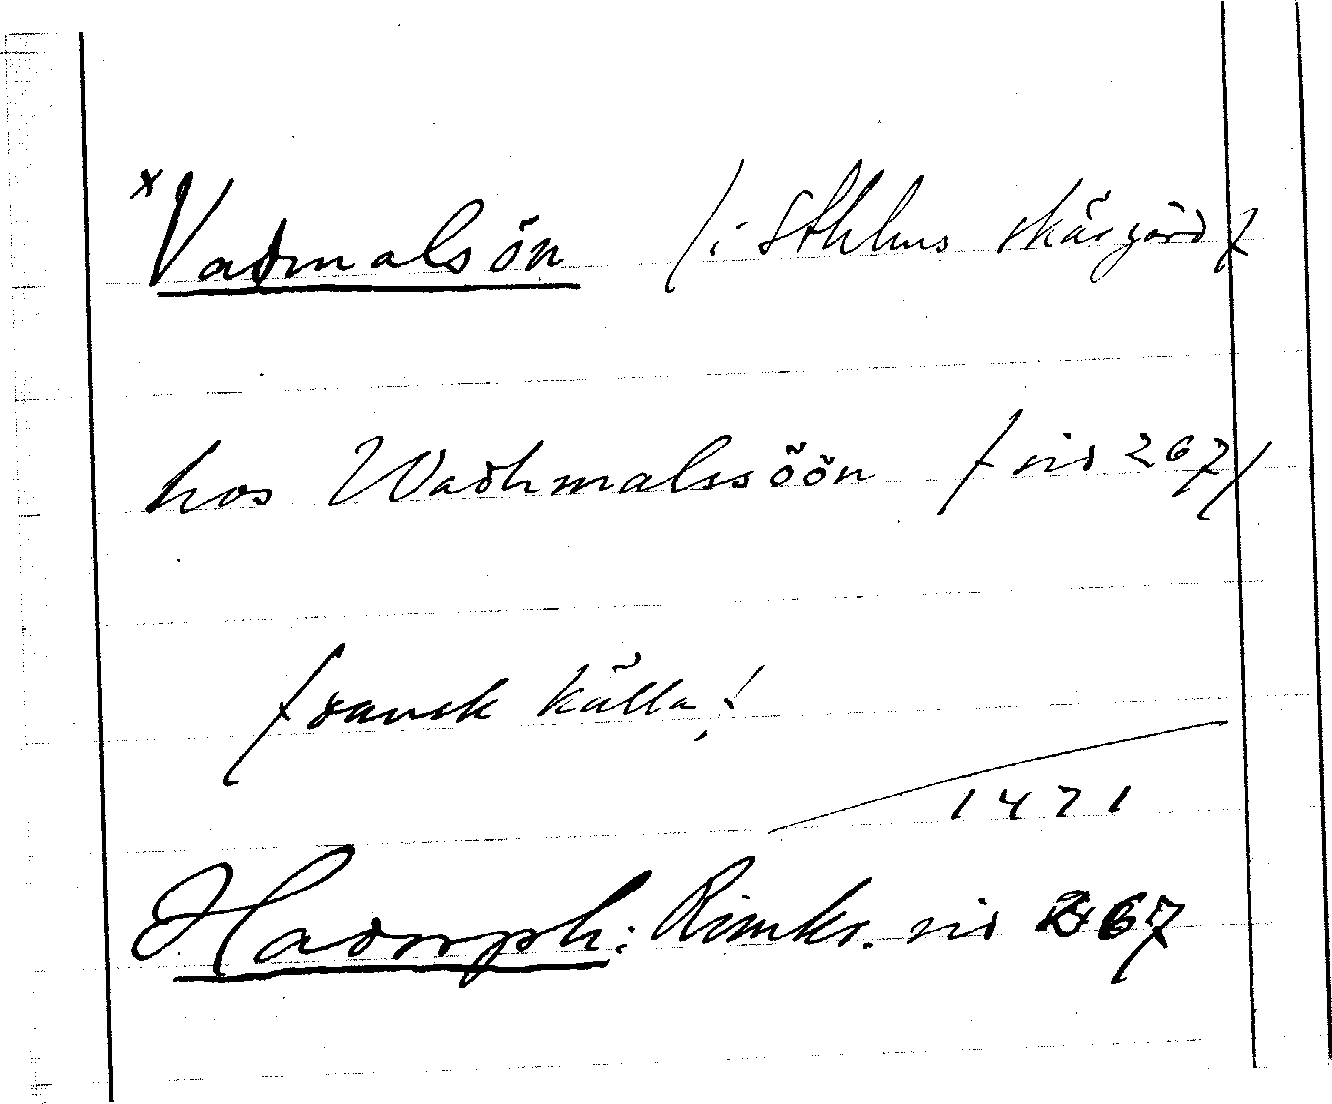 x Vadmalsön (i Sthlms skärgård)
hos Wadhmalssöön (sid 267)
(dansk källa!)
1471
Hadorph: Rimkr. sid 267